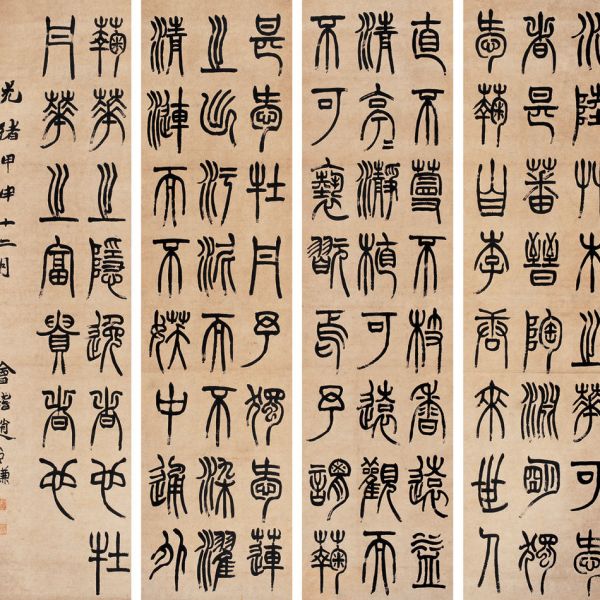 水陸艸木之華可愛
者甚蕃晉陶淵明獨
愛蘜自李唐來世人
直不蔓不枝香遠益
清亭〻瀞植可遠觀而
不可褻翫焉予謂蘜
甚愛牡丹予獨愛蓮
之出淤泥而不染濯
清漣而不媄中通外
蘜華之隱逸者也牡
丹華之富貴者也
光緒甲申十二月 會稽趙之謙